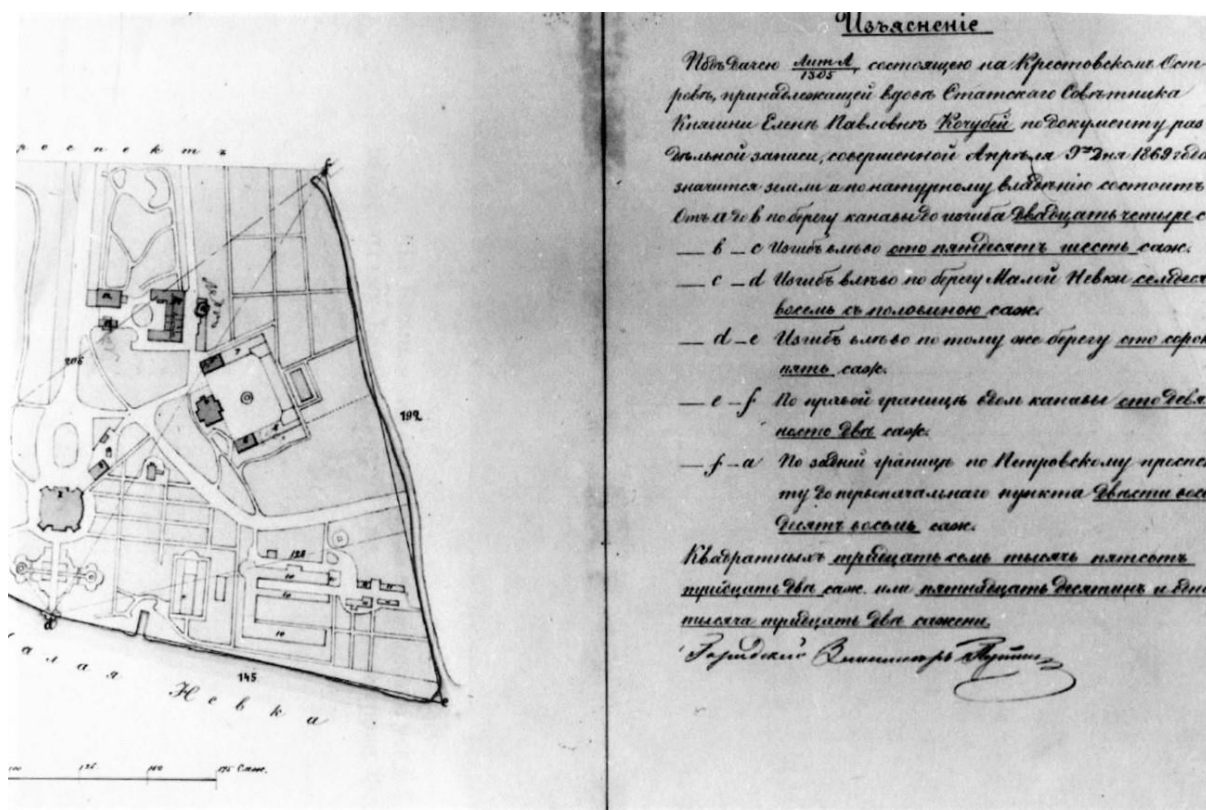 роспектъ
206
192
7
2
128
10
10
10
145
алая Невка
d
e
f
100 125 150 175 Саж.
Изъясненіе
Подъ дачею Лит. А 1305 состоящею на Крестовскомъ Ост-
ровѣ, принадлежащей вдовѣ Статскаго Совѣтника
Княгини Еленѣ Павловнѣ Кочубей по документу раз
дѣльной записи, совершенной Апрѣля 9го дня 1869 года
значится земли а по натурному владѣнію состоитъ
Отъ a до b по берегу канавы до изгиба двадцать четыре с
— b — c Изгибъ влѣво сто пятдесятъ шесть саж.
— c — d Изгибъ влѣво по берегу Малой Невки семьдеся
восемь съ половиною саж.
— d — e Изгибъ влѣво по тому же берегу сто сорок
пять саж.
— e — f По правой границѣ вдоль канавы сто девя
носто два саж.
— f — a По задней границѣ по Петровскому проспек
ту до первоначальнаго пункта двѣсти восе
десятъ восемь саж.
Квадратныхъ тридцать семь тысячъ пятсотъ
тридцать два саж. или пятнадцать десятинъ и одна
тысяча тридцать два сажени.
Городской Землемѣръ